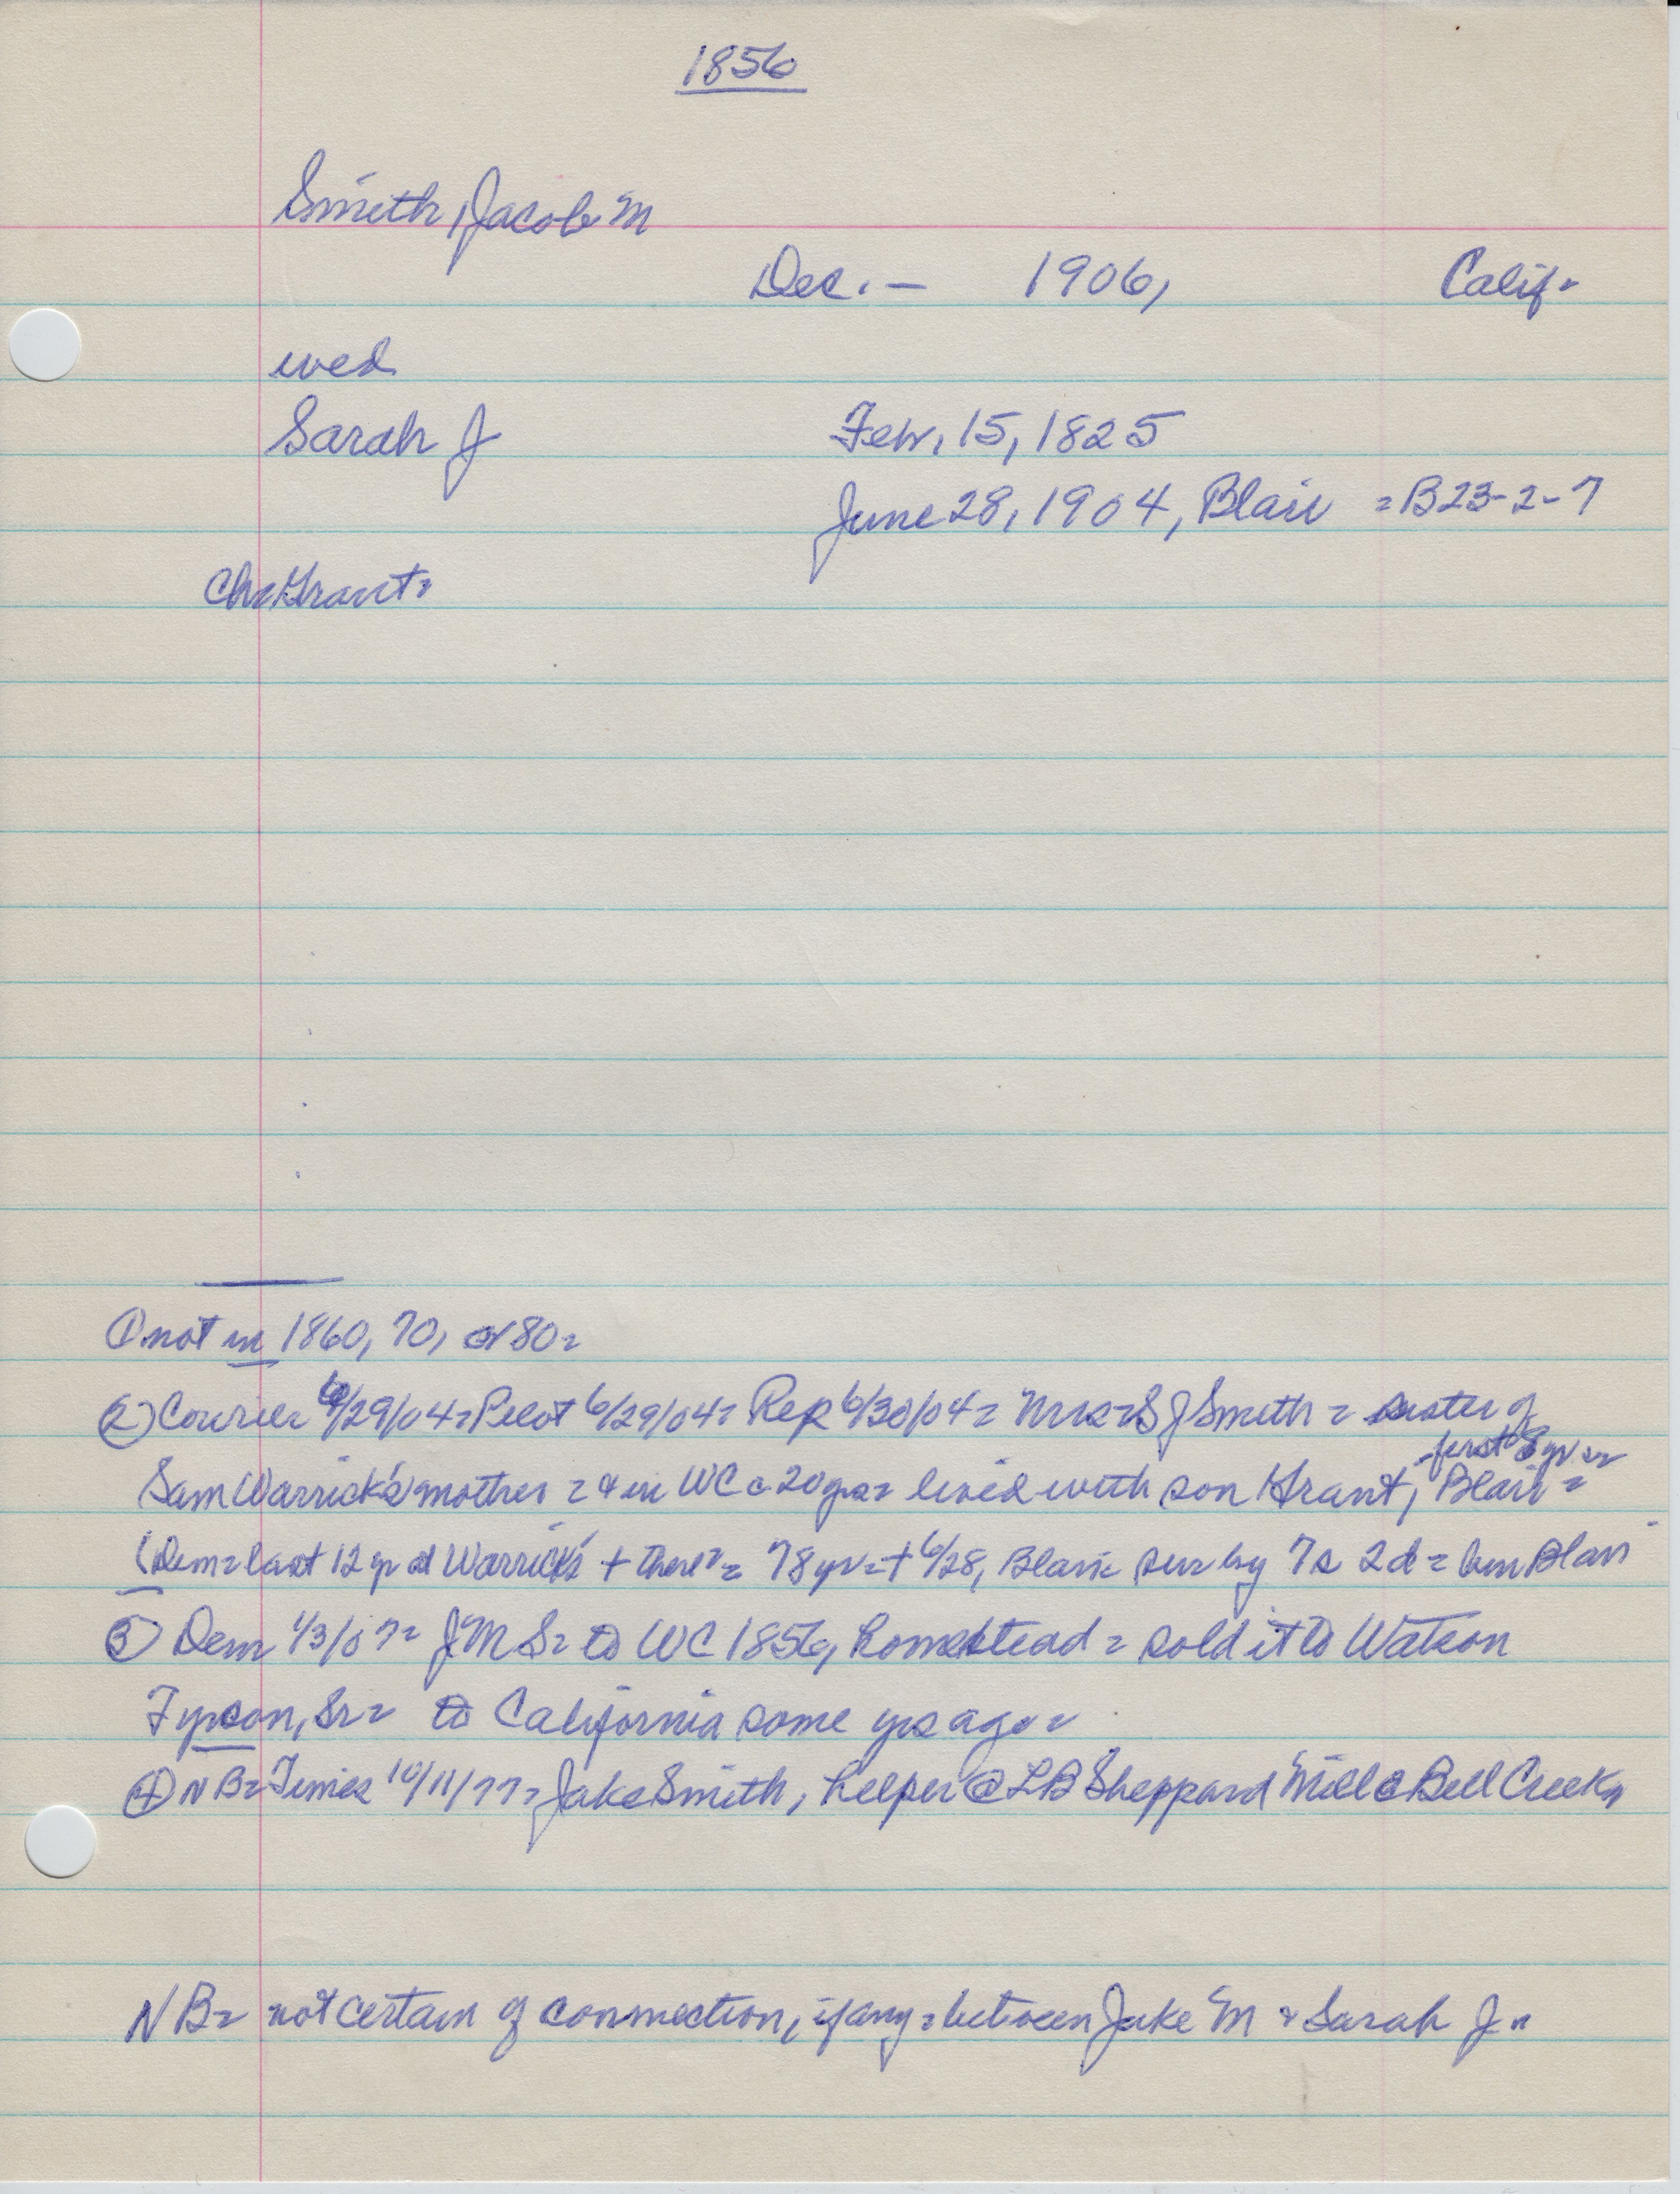 1856
Smith, Jacob M
Dec. — 1906, Calif.
wed
Sarah J
Febr, 15, 1825
June 28, 1904, Blair = B23-2-7
Ch = Grant =
① not in 1860, 70, or 80 =
② Courier 6/29/04 = Pilot 6/29/04 = Rep 6/30/04 = Mrs = S J Smith = sister of
first 8 yr in
Sam Warrick's mother = & in WC c 20 yrs = lived with son Grant, Blair =
(Dem = last 12 yr at Warrick's + there = 78 yr = + 6/28, Blair = sur by 7s 2d = bur Blair
③ Dem 1/3/07 = J M S = to WC 1856, homestead = sold it to Watson
Tyson, Sr = to California some yrs ago =
④ NB = Times 10/11/77 = Jake Smith, helper @ L B Sheppard Mill @ Bell Creek =
NB = not certain of connection, if any = between Jake M & Sarah J =